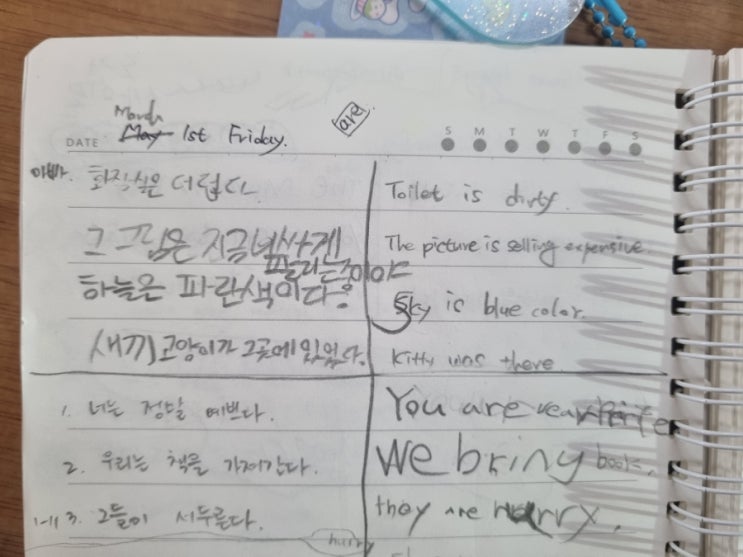 are
March
May 1st Friday.
DATE
S M T W T F S
아빠. 화장실은 더럽다.
Toilet is dirty.
그 그림은 지금 비싸게
팔리는 중이야
The picture is selling expensive.
하늘은 파란색이다.
Sky is blue color.
새끼 고양이가 그곳에 있었다.
Kitty was there
1. 너는 정말 예쁘다.
You are
2. 우리는 책을 가져간다.
We bring book.
3. 그들이 서두른다.
they are hurry.
hurry